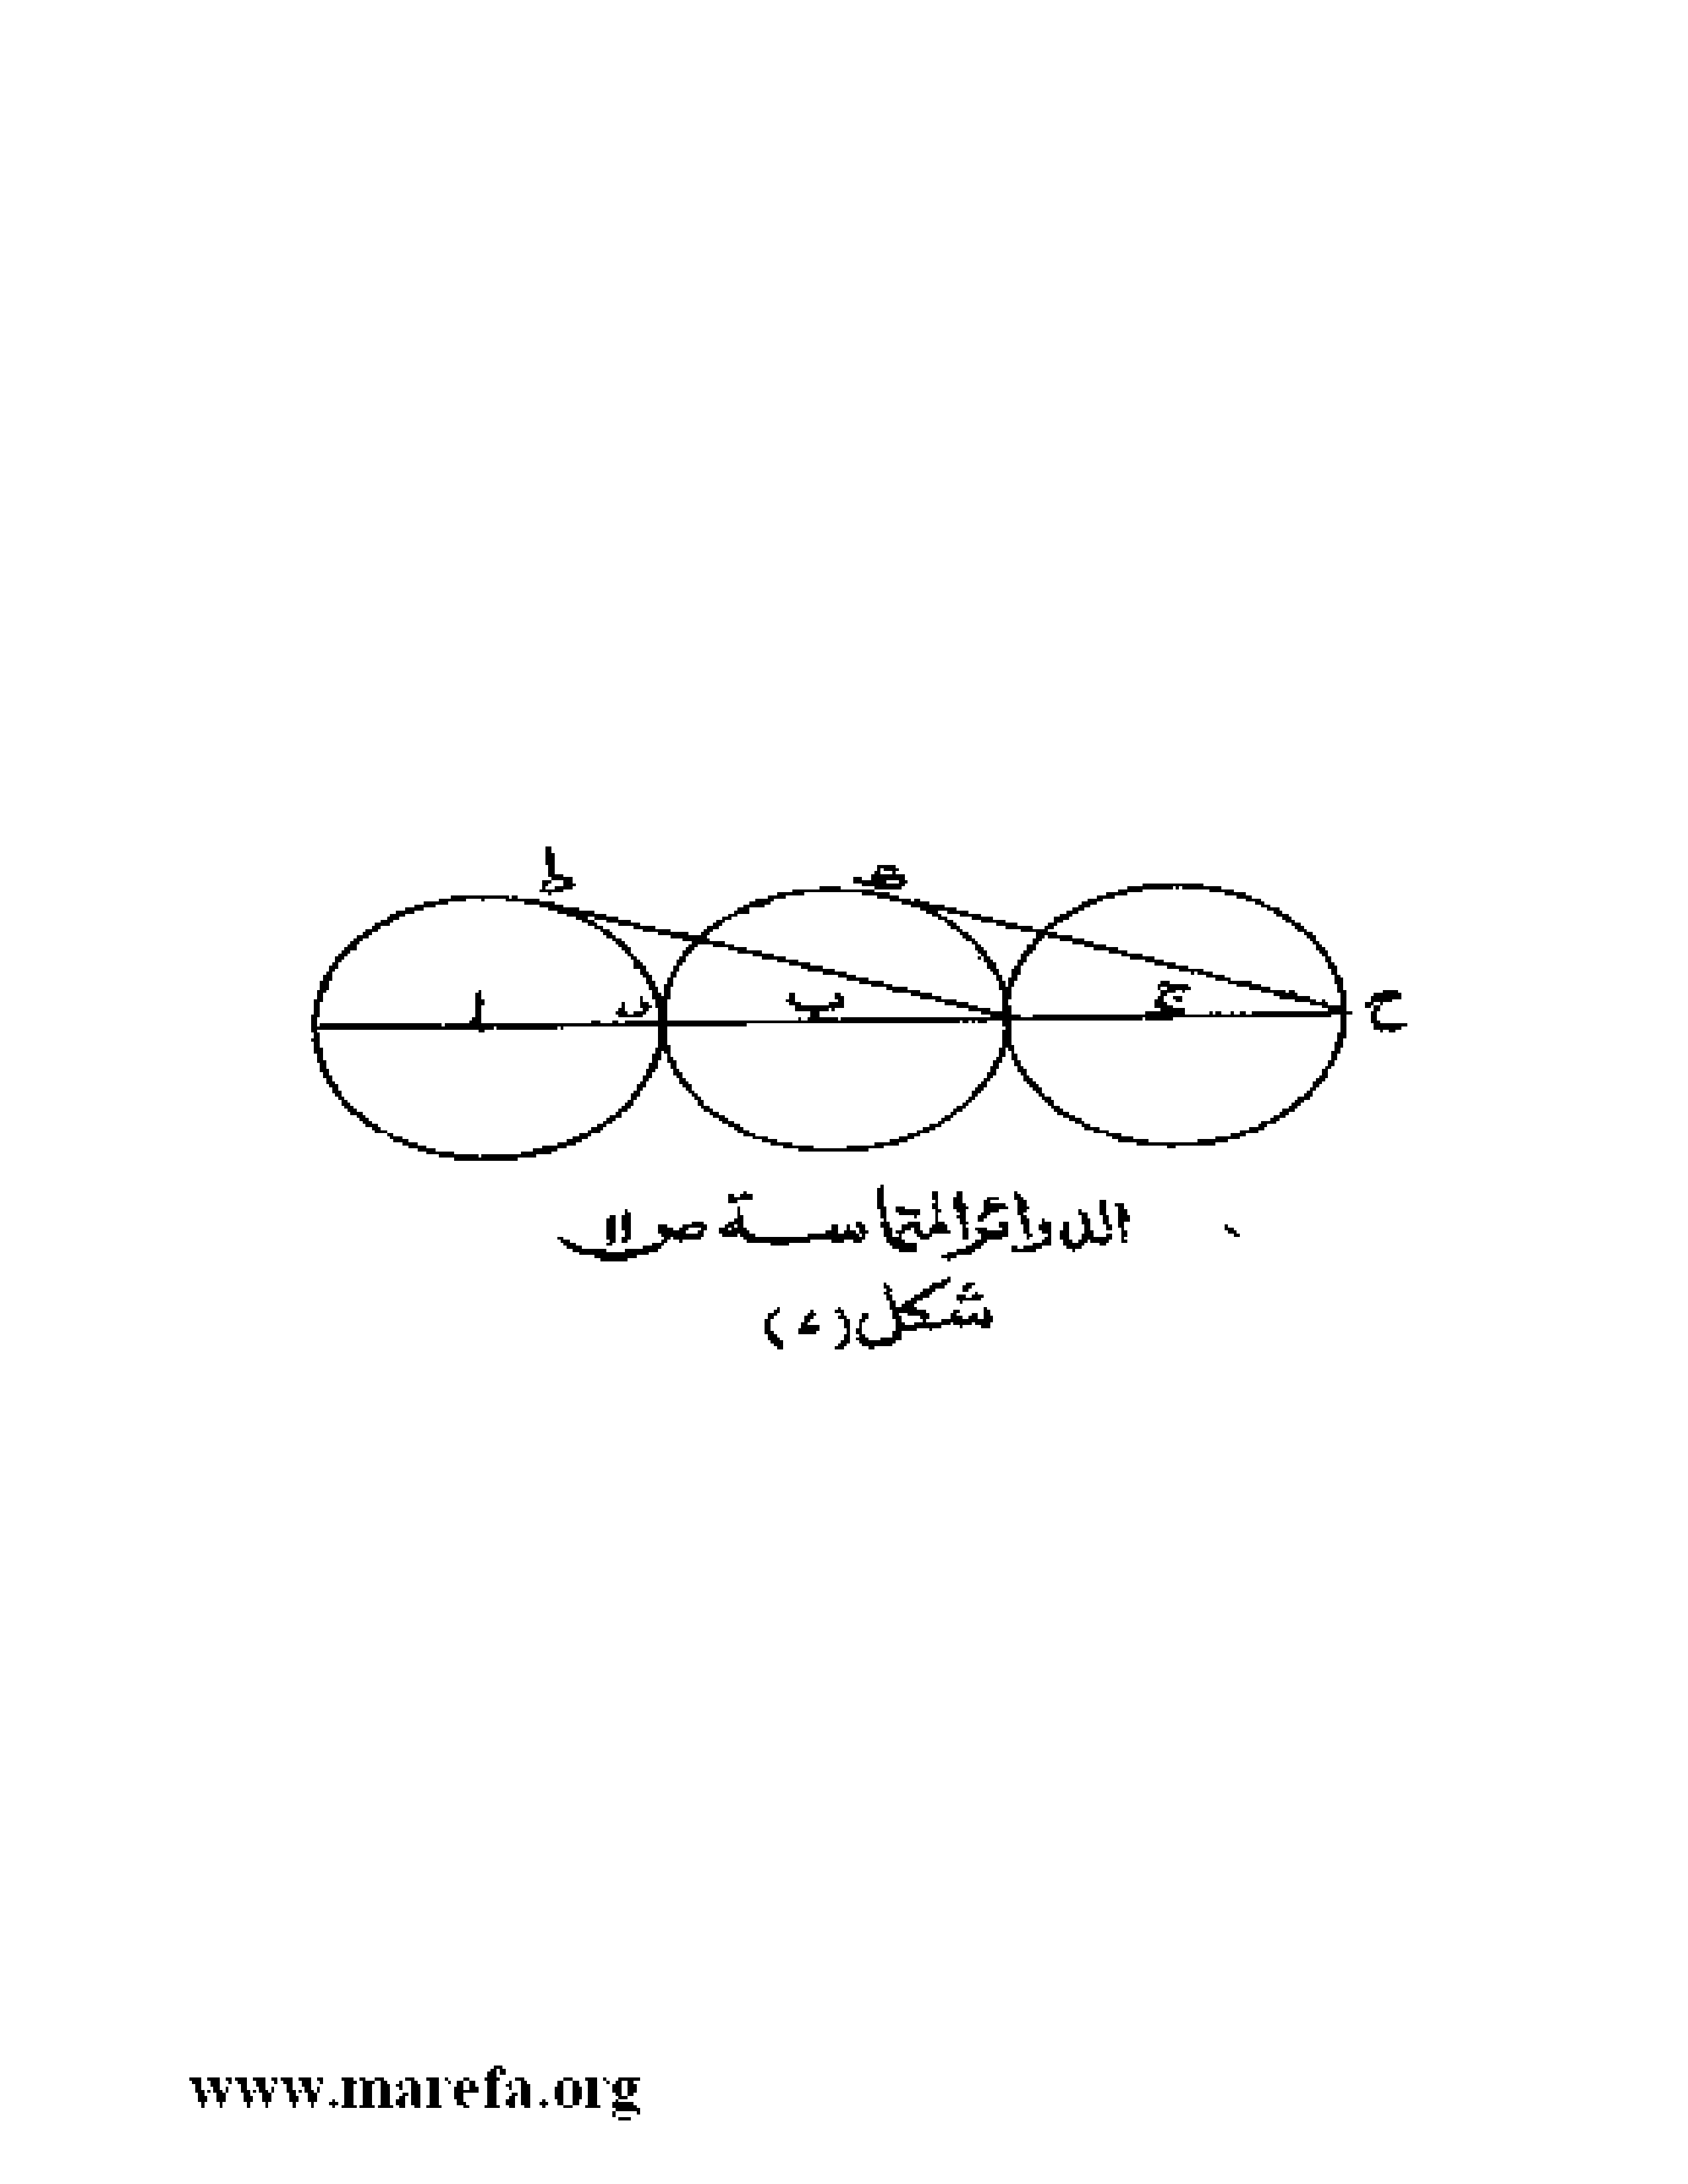 ط
ھ
ا
ب
ح
الدوائر المتماسة ص ١١
شكل (٤)
www.marefa.org